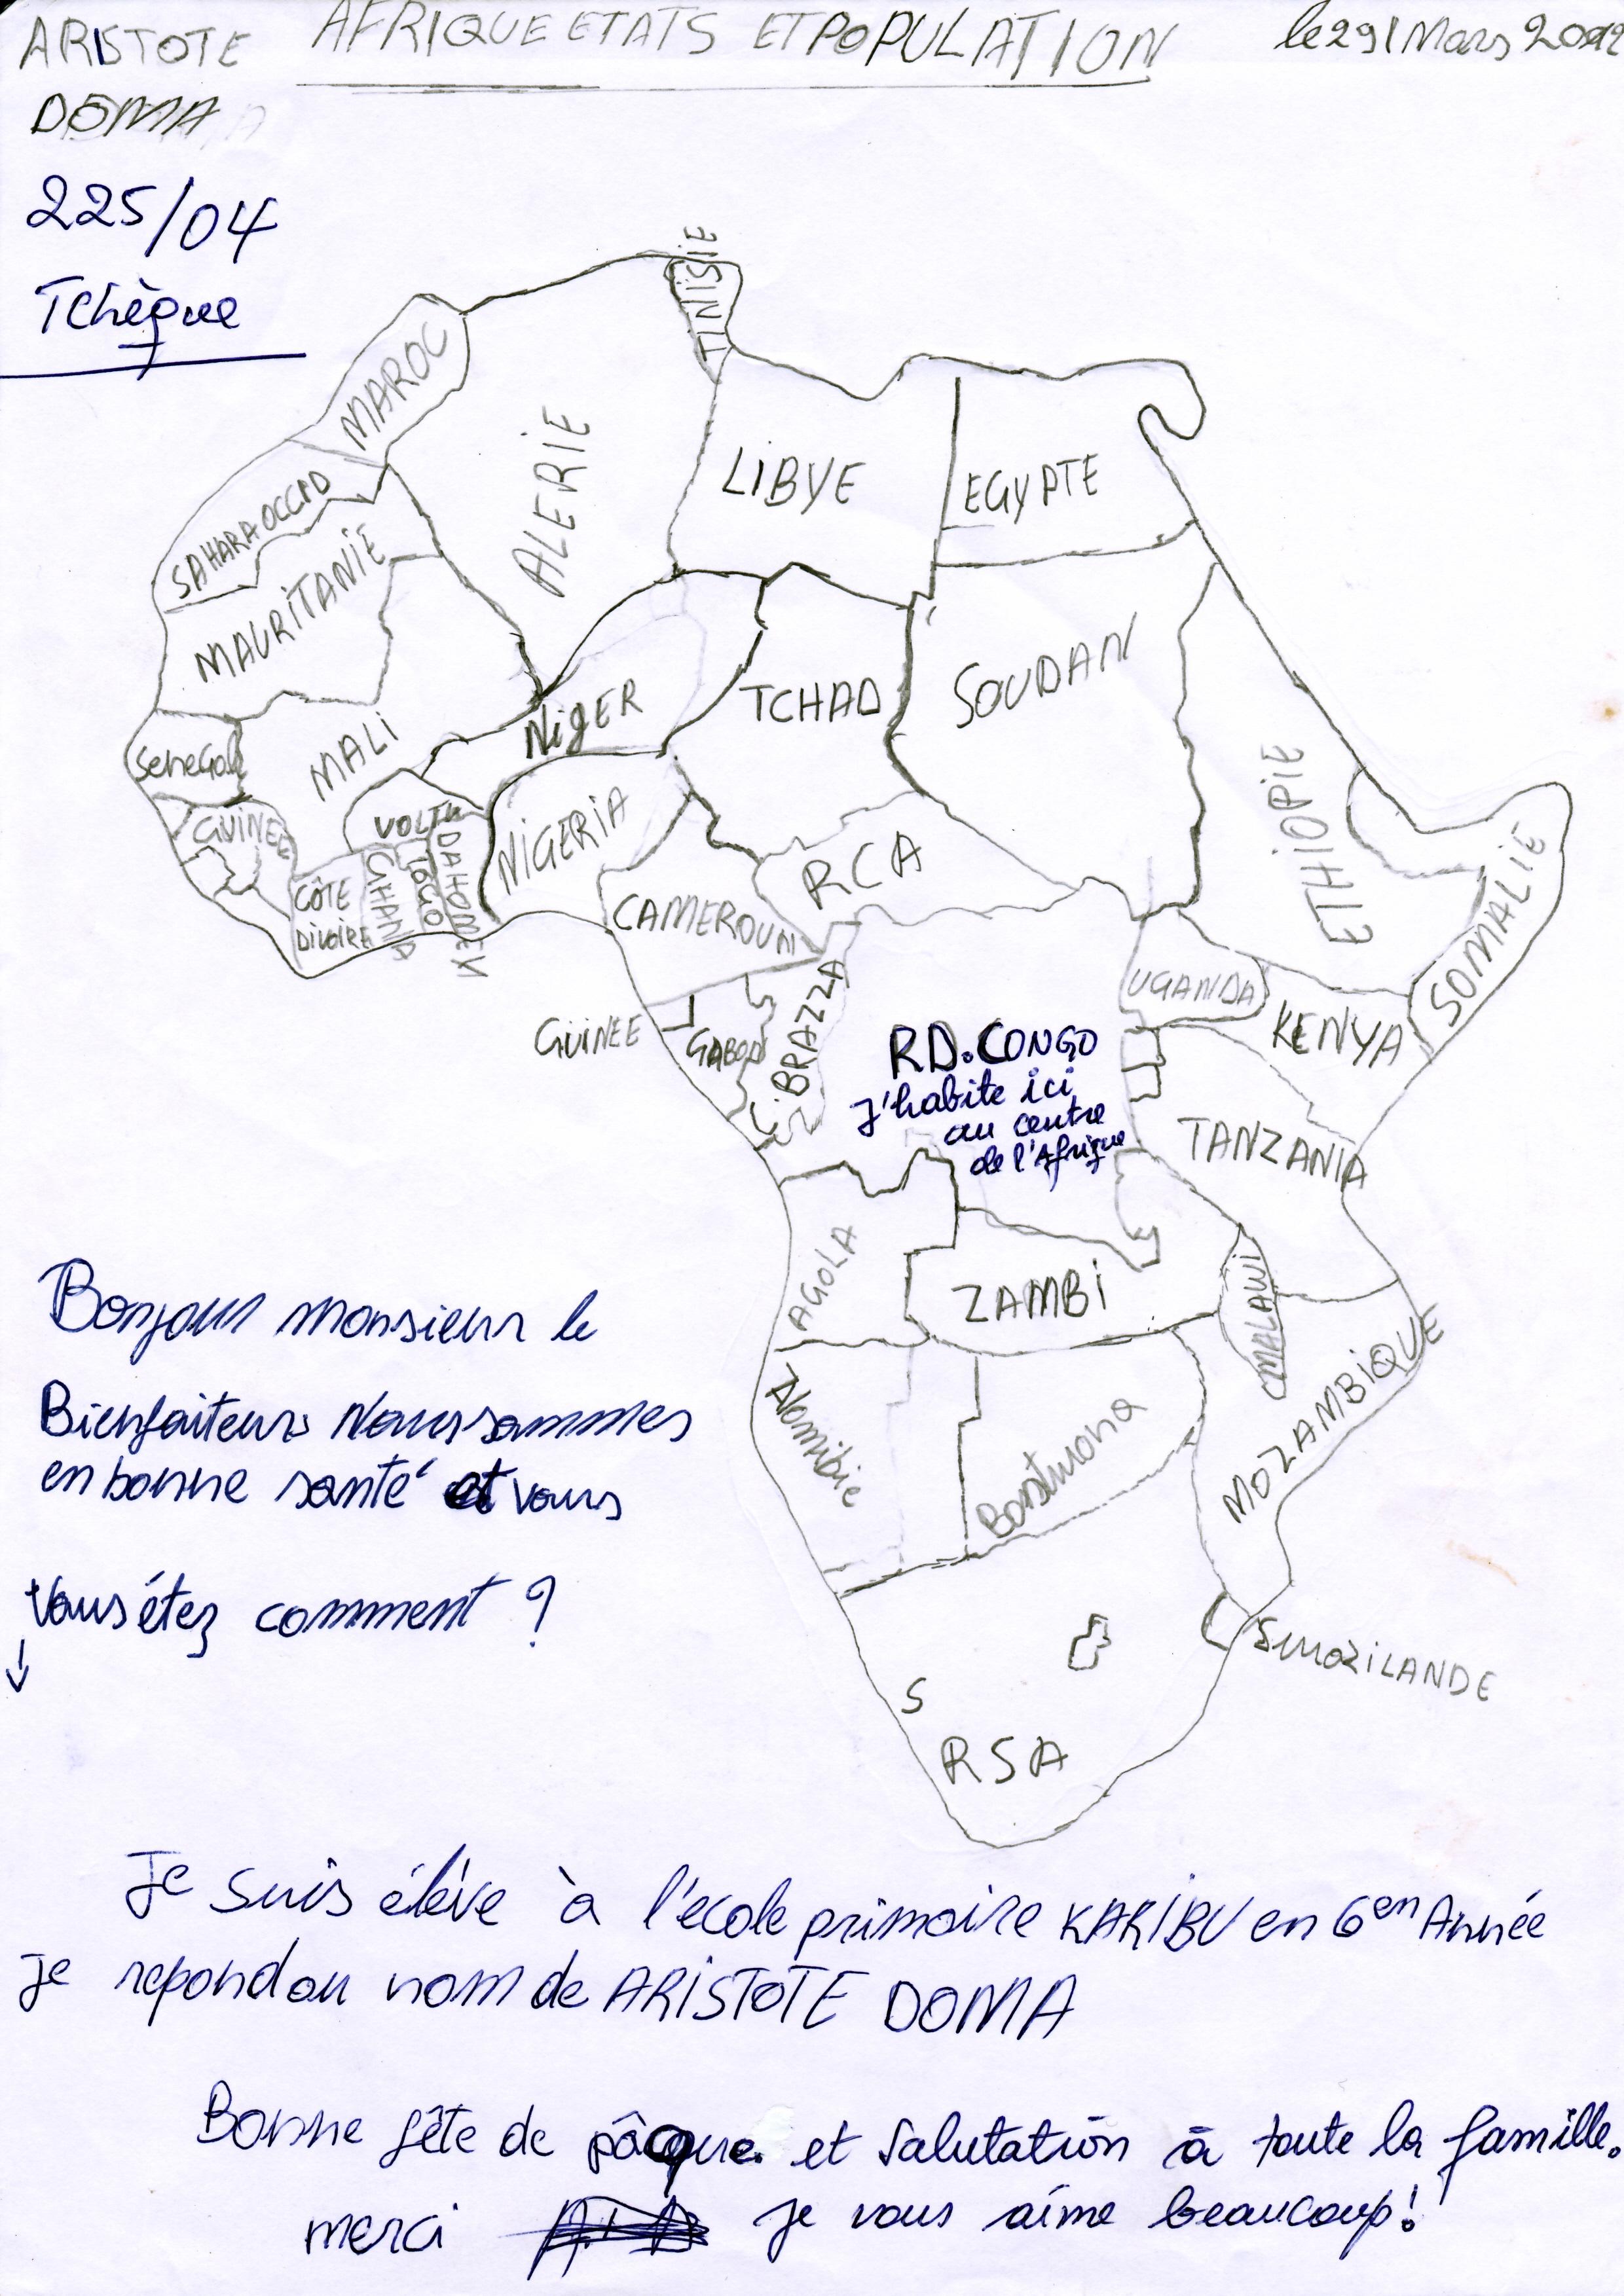 ARISTOTE
DOMA
225/04
Tchèque
AFRIQUE ETATS ET POPULATION
le 29/Mars 2012
TUNISIE
MAROC
ALERIE
LIBYE
EGYPTE
SAHARA OCCAD
MAURITANIE
MALI
NigER
TCHAD
SOUDAN
ETHIOPIE
SENEGAL
GUINEE
VOLTA
DAHOMEY
TOGO
GHANA
CÔTE
DivoiRE
NiGERiA
RCA
CAMEROUN
SOMALIE
UGANDA
KENYA
GUINEE
GABON
C. BRAZZA
RD.CONGO
J'habite ici
au centre
de l'Afrique
TANZANIA
AGOLA
ZAMBi
MALAWI
MOZAMBiQUE
Namibie
Bostwana
SwaziLANDE
S
RSA
Bonjour monsieur le
Bienfaiteur Nous sommes
en bonne santé et vous
Vous étez comment ?
Je suis élève à l'ecole primaire KARIBU en 6en Année
Je repond au nom de ARISTOTE DOMA
Bonne fête de pâque. et Salutation à toute la famille.
merci je vous aime beaucoup!